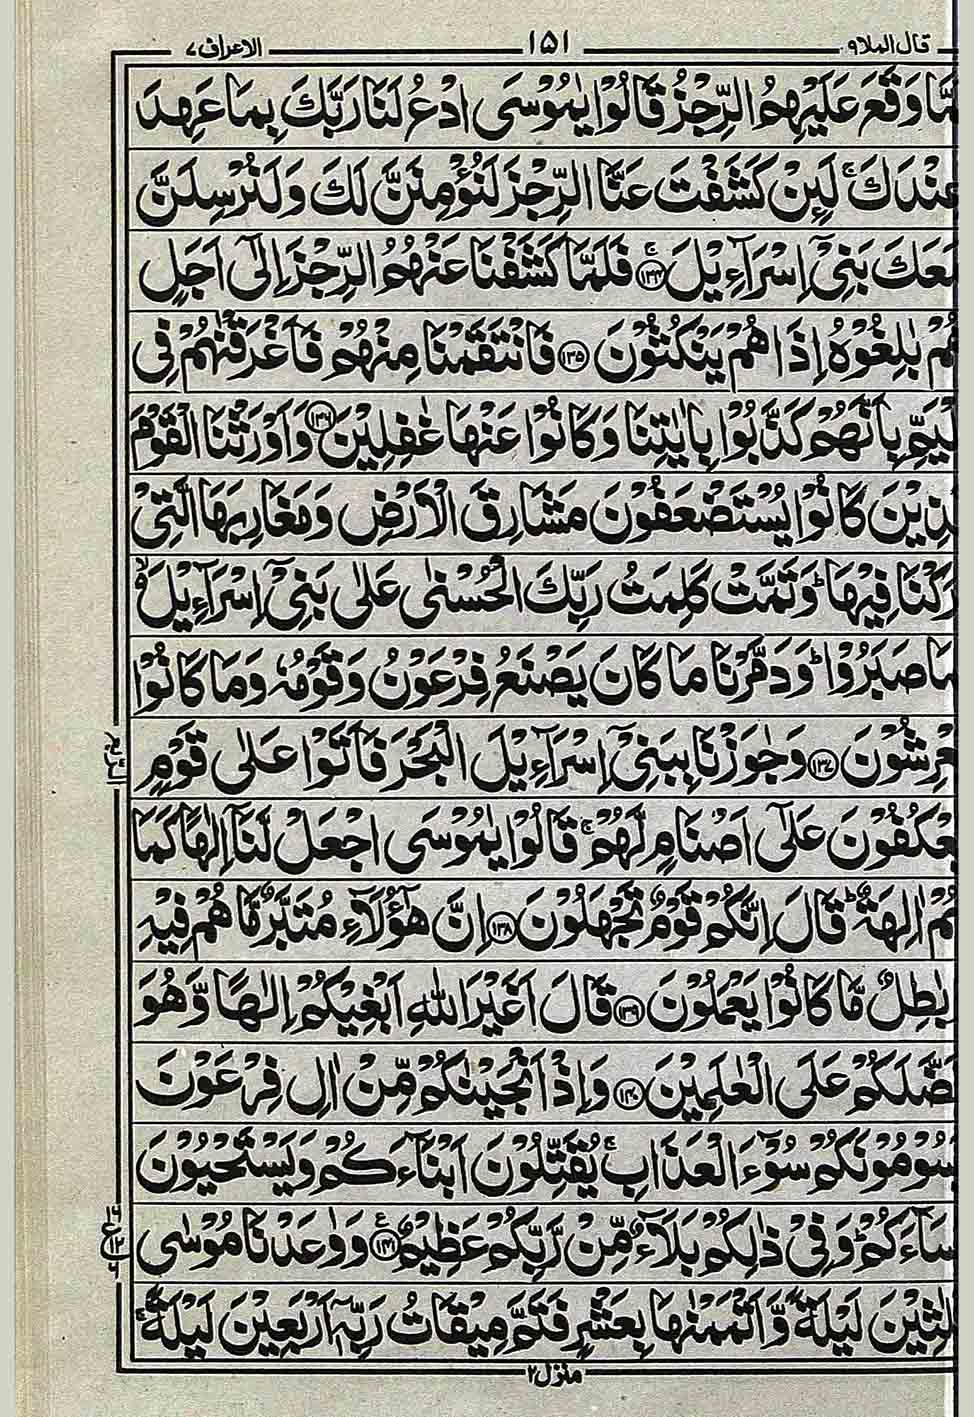 قال الملا ٩ ١٥١ الاعراف ٧
وَقَعَ عَلَيْهِمُ الرِّجْزُ قَالُوْا يٰمُوْسَى ادْعُ لَنَا رَبَّكَ بِمَا عَهِدَ
عِنْدَكَ ۚ لَئِنْ كَشَفْتَ عَنَّا الرِّجْزَ لَنُؤْمِنَنَّ لَكَ وَلَنُرْسِلَنَّ
مَعَكَ بَنِيْۤ اِسْرَآءِيْلَ ۚ ﴿۱۳۴﴾ فَلَمَّا كَشَفْنَا عَنْهُمُ الرِّجْزَ اِلٰۤى اَجَلٍ
هُمْ بٰلِغُوْهُ اِذَا هُمْ يَنْكُثُوْنَ ﴿۱۳۵﴾ فَانْتَقَمْنَا مِنْهُمْ فَاَغْرَقْنٰهُمْ فِي
بِاَنَّهُمْ كَذَّبُوْا بِاٰيٰتِنَا وَكَانُوْا عَنْهَا غٰفِلِيْنَ ﴿۱۳۶﴾ وَاَوْرَثْنَا الْقَوْمَ
الَّذِيْنَ كَانُوْا يُسْتَضْعَفُوْنَ مَشَارِقَ الْاَرْضِ وَمَغَارِبَهَا الَّتِيْ
بٰرَكْنَا فِيْهَا ؕ وَتَمَّتْ كَلِمَتُ رَبِّكَ الْحُسْنٰى عَلٰى بَنِيْۤ اِسْرَآءِيْلَ ۙ۬
صَبَرُوْا ؕ وَدَمَّرْنَا مَا كَانَ يَصْنَعُ فِرْعَوْنُ وَقَوْمُهٗ وَمَا كَانُوْا
يَعْرِشُوْنَ ﴿۱۳۷﴾ وَجٰوَزْنَا بِبَنِيْۤ اِسْرَآءِيْلَ الْبَحْرَ فَاَتَوْا عَلٰى قَوْمٍ
يَّعْكُفُوْنَ عَلٰۤى اَصْنَامٍ لَّهُمْ ۚ قَالُوْا يٰمُوْسَى اجْعَلْ لَّنَاۤ اِلٰهًا كَمَا
لَهُمْ اٰلِهَةٌ ؕ قَالَ اِنَّكُمْ قَوْمٌ تَجْهَلُوْنَ ﴿۱۳۸﴾ اِنَّ هٰۤؤُلَآءِ مُتَبَّرٌ مَّا هُمْ فِيْهِ
وَبٰطِلٌ مَّا كَانُوْا يَعْمَلُوْنَ ﴿۱۳۹﴾ قَالَ اَغَيْرَ اللّٰهِ اَبْغِيْكُمْ اِلٰهًا وَّهُوَ
فَضَّلَكُمْ عَلَى الْعٰلَمِيْنَ ﴿۱۴۰﴾ وَاِذْ اَنْجَيْنٰكُمْ مِّنْ اٰلِ فِرْعَوْنَ
يَسُوْمُوْنَكُمْ سُوْٓءَ الْعَذَابِ ۚ يُقَتِّلُوْنَ اَبْنَآءَكُمْ وَيَسْتَحْيُوْنَ
نِسَآءَكُمْ ؕ وَفِيْ ذٰلِكُمْ بَلَآءٌ مِّنْ رَّبِّكُمْ عَظِيْمٌ ﴿۱۴۱﴾ وَوٰعَدْنَا مُوْسٰى
ثَلٰثِيْنَ لَيْلَةً وَّاَتْمَمْنٰهَا بِعَشْرٍ فَتَمَّ مِيْقَاتُ رَبِّهٖۤ اَرْبَعِيْنَ لَيْلَةً ۚ
منزل ٢